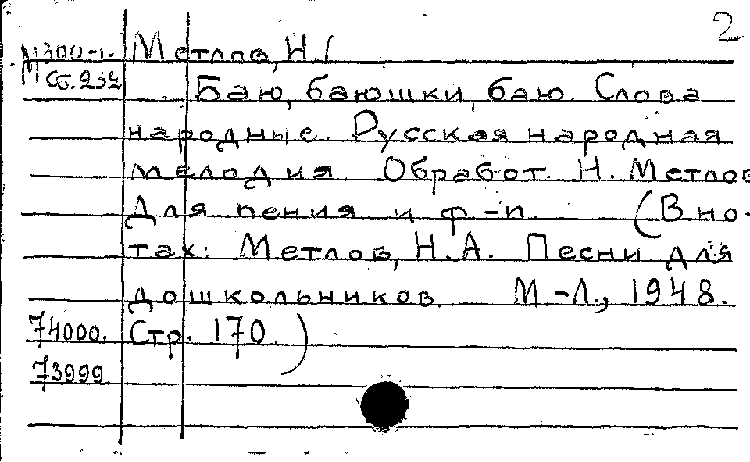 2
М300-1. Метлов, Н.
М Сб. 232
Баю, баюшки, баю. Слова
народные. Русская народная
мелодия. Обработ. Н. Метлов
Для пения и ф-п. (В но-
тах: Метлов, Н.А. Песни для
дошкольников. М-Л., 1948.
74000. Стр. 170.)
73999